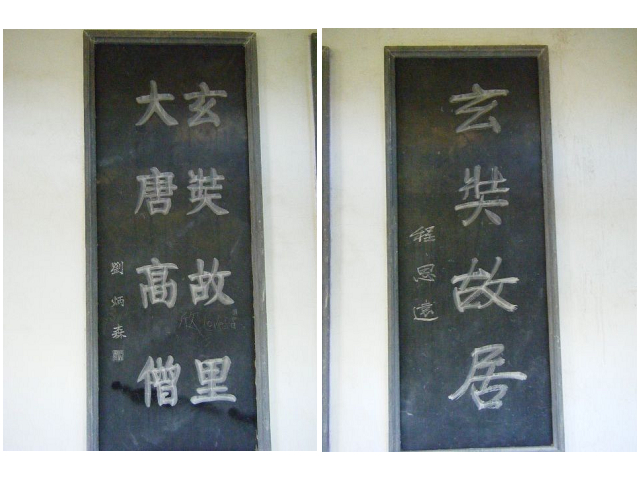 玄奘故里
大唐高僧
劉炳森
玄奘故居
程思遠